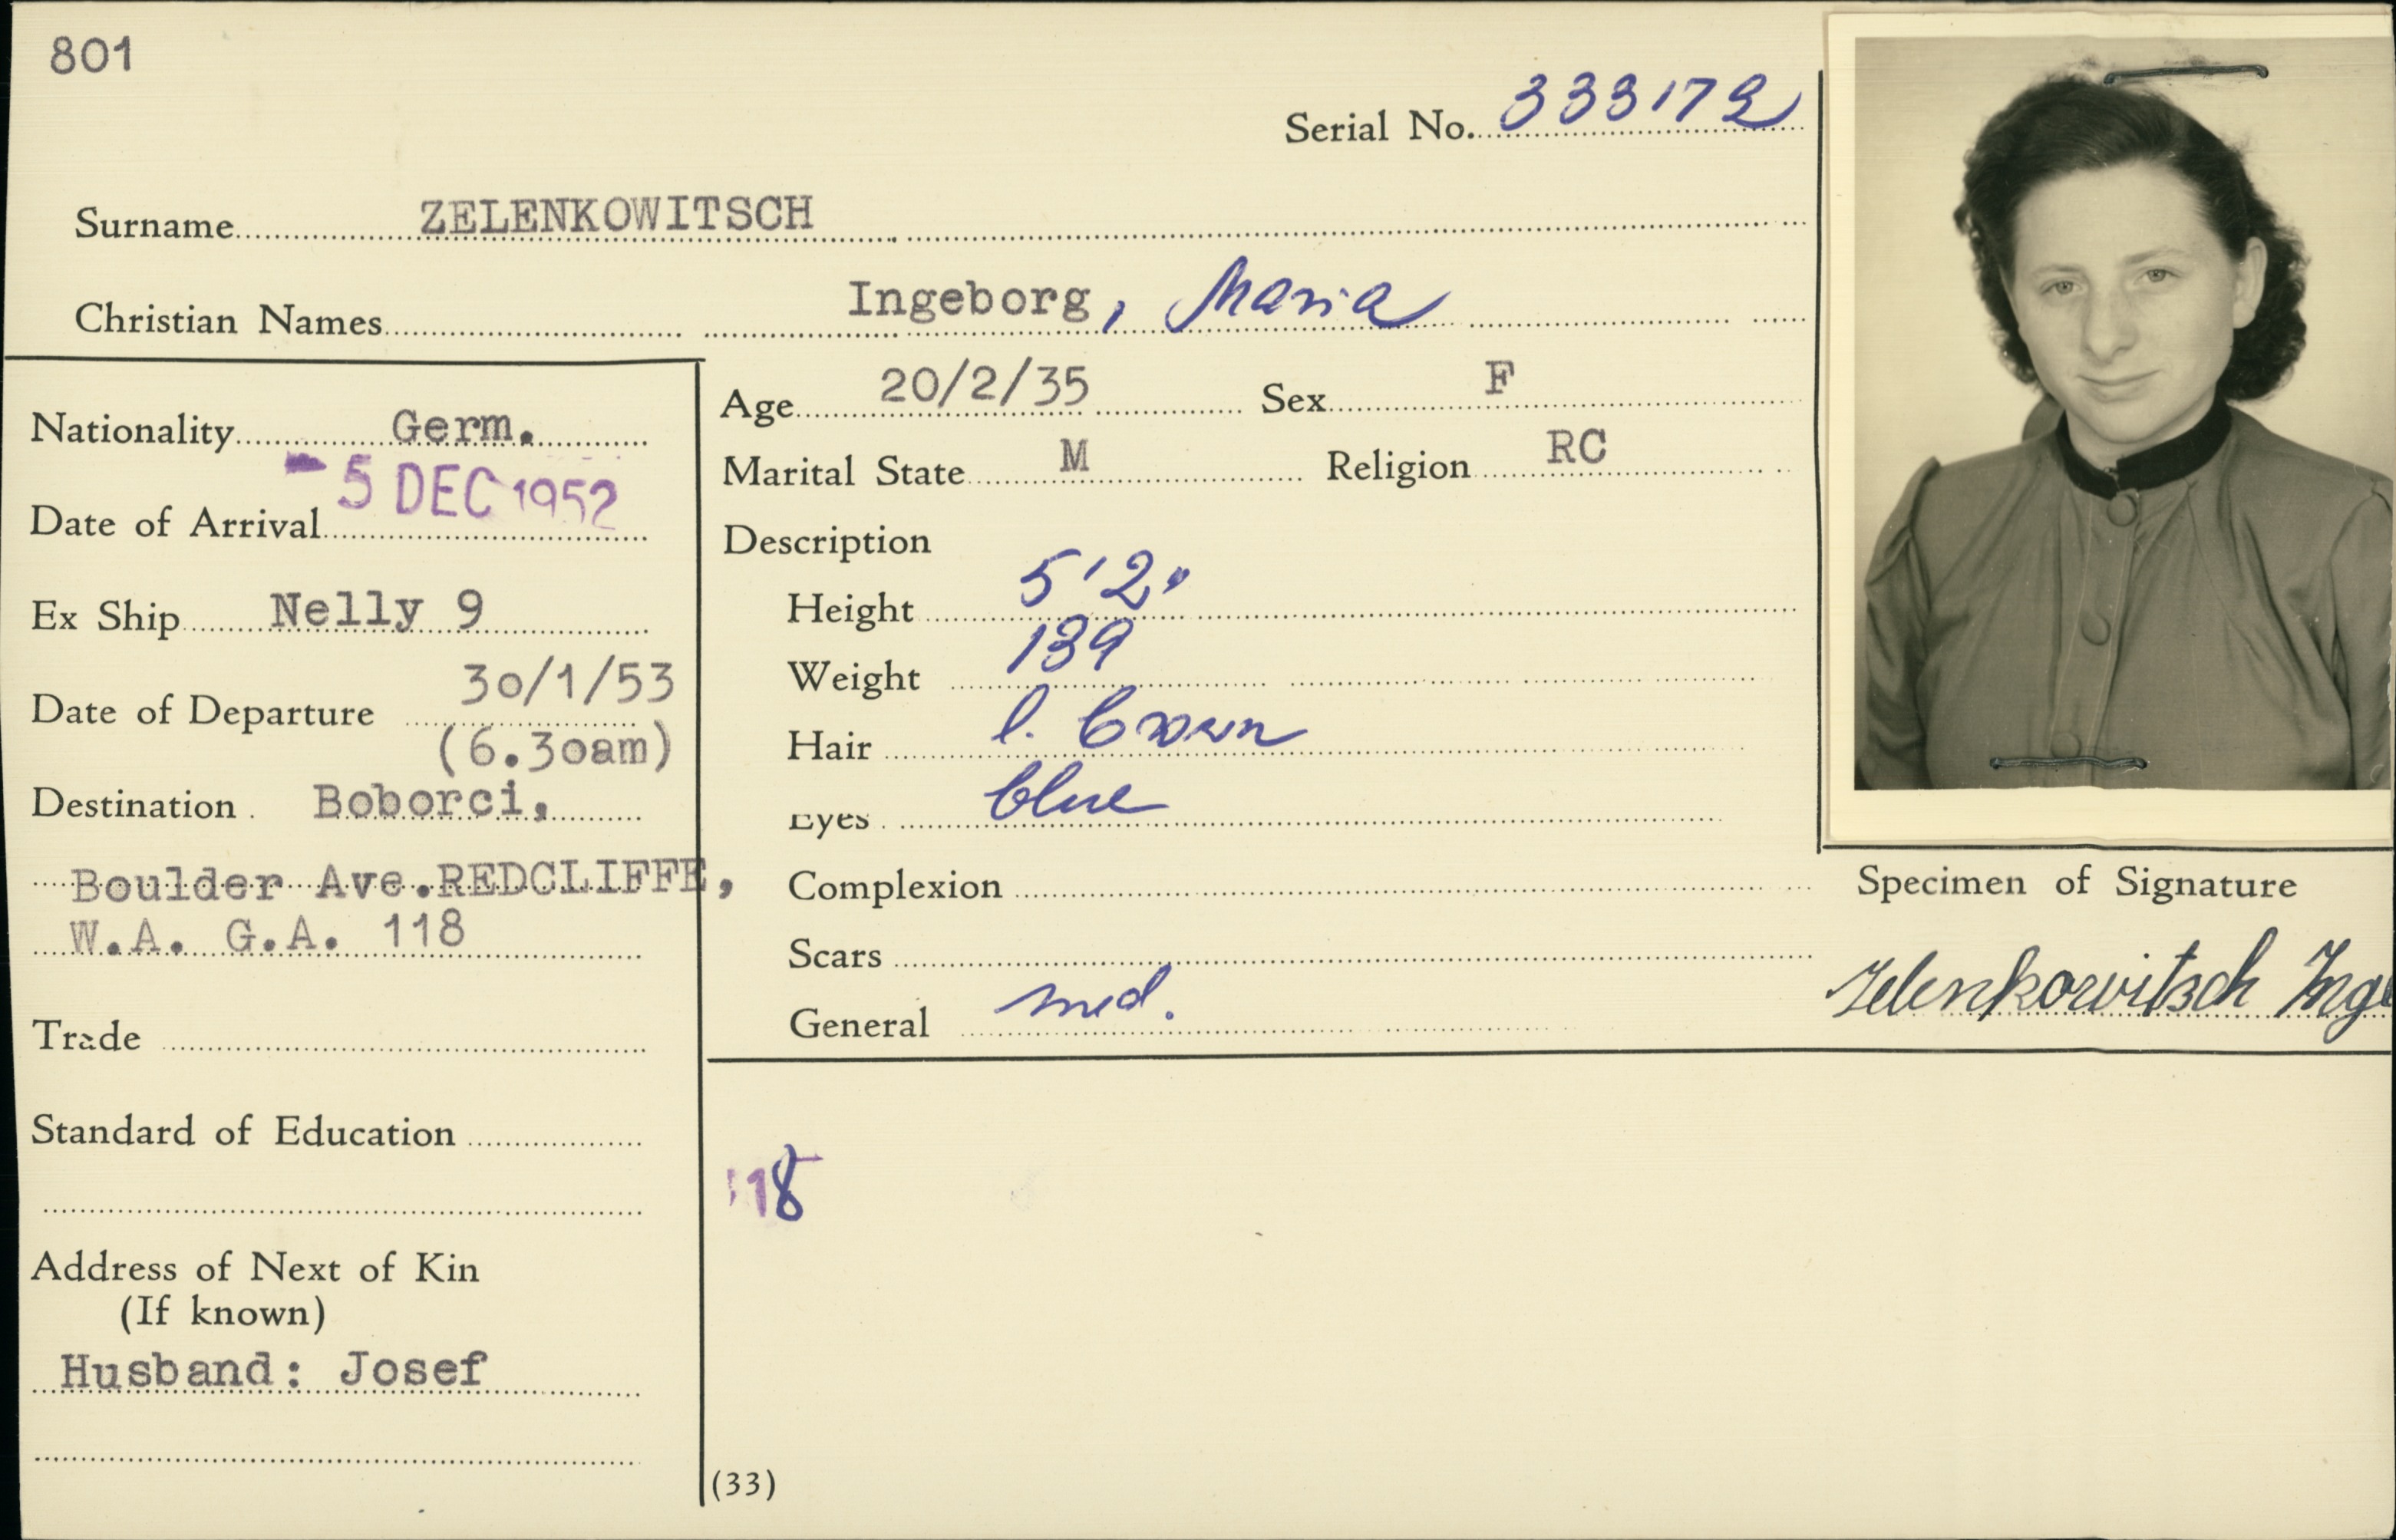 801
Serial No. 333172
Surname ZELENKOWITSCH
Christian Names Ingeborg, Maria
Nationality Germ.
Date of Arrival - 5 DEC 1952
Ex Ship Nelly 9
Date of Departure 30/1/53
(6.30am)
Destination Boborci,
Boulder Ave.REDCLIFFE,
W.A. G.A. 118
Trade
Standard of Education
Address of Next of Kin
(If known)
Husband: Josef
Age 20/2/35 Sex F
Marital State M Religion RC
Description
Height 5'2"
Weight 139
Hair l. brown
Eyes blue
Complexion
Scars
General med.
18
(33)
Specimen of Signature
Zelenkowitsch Inge